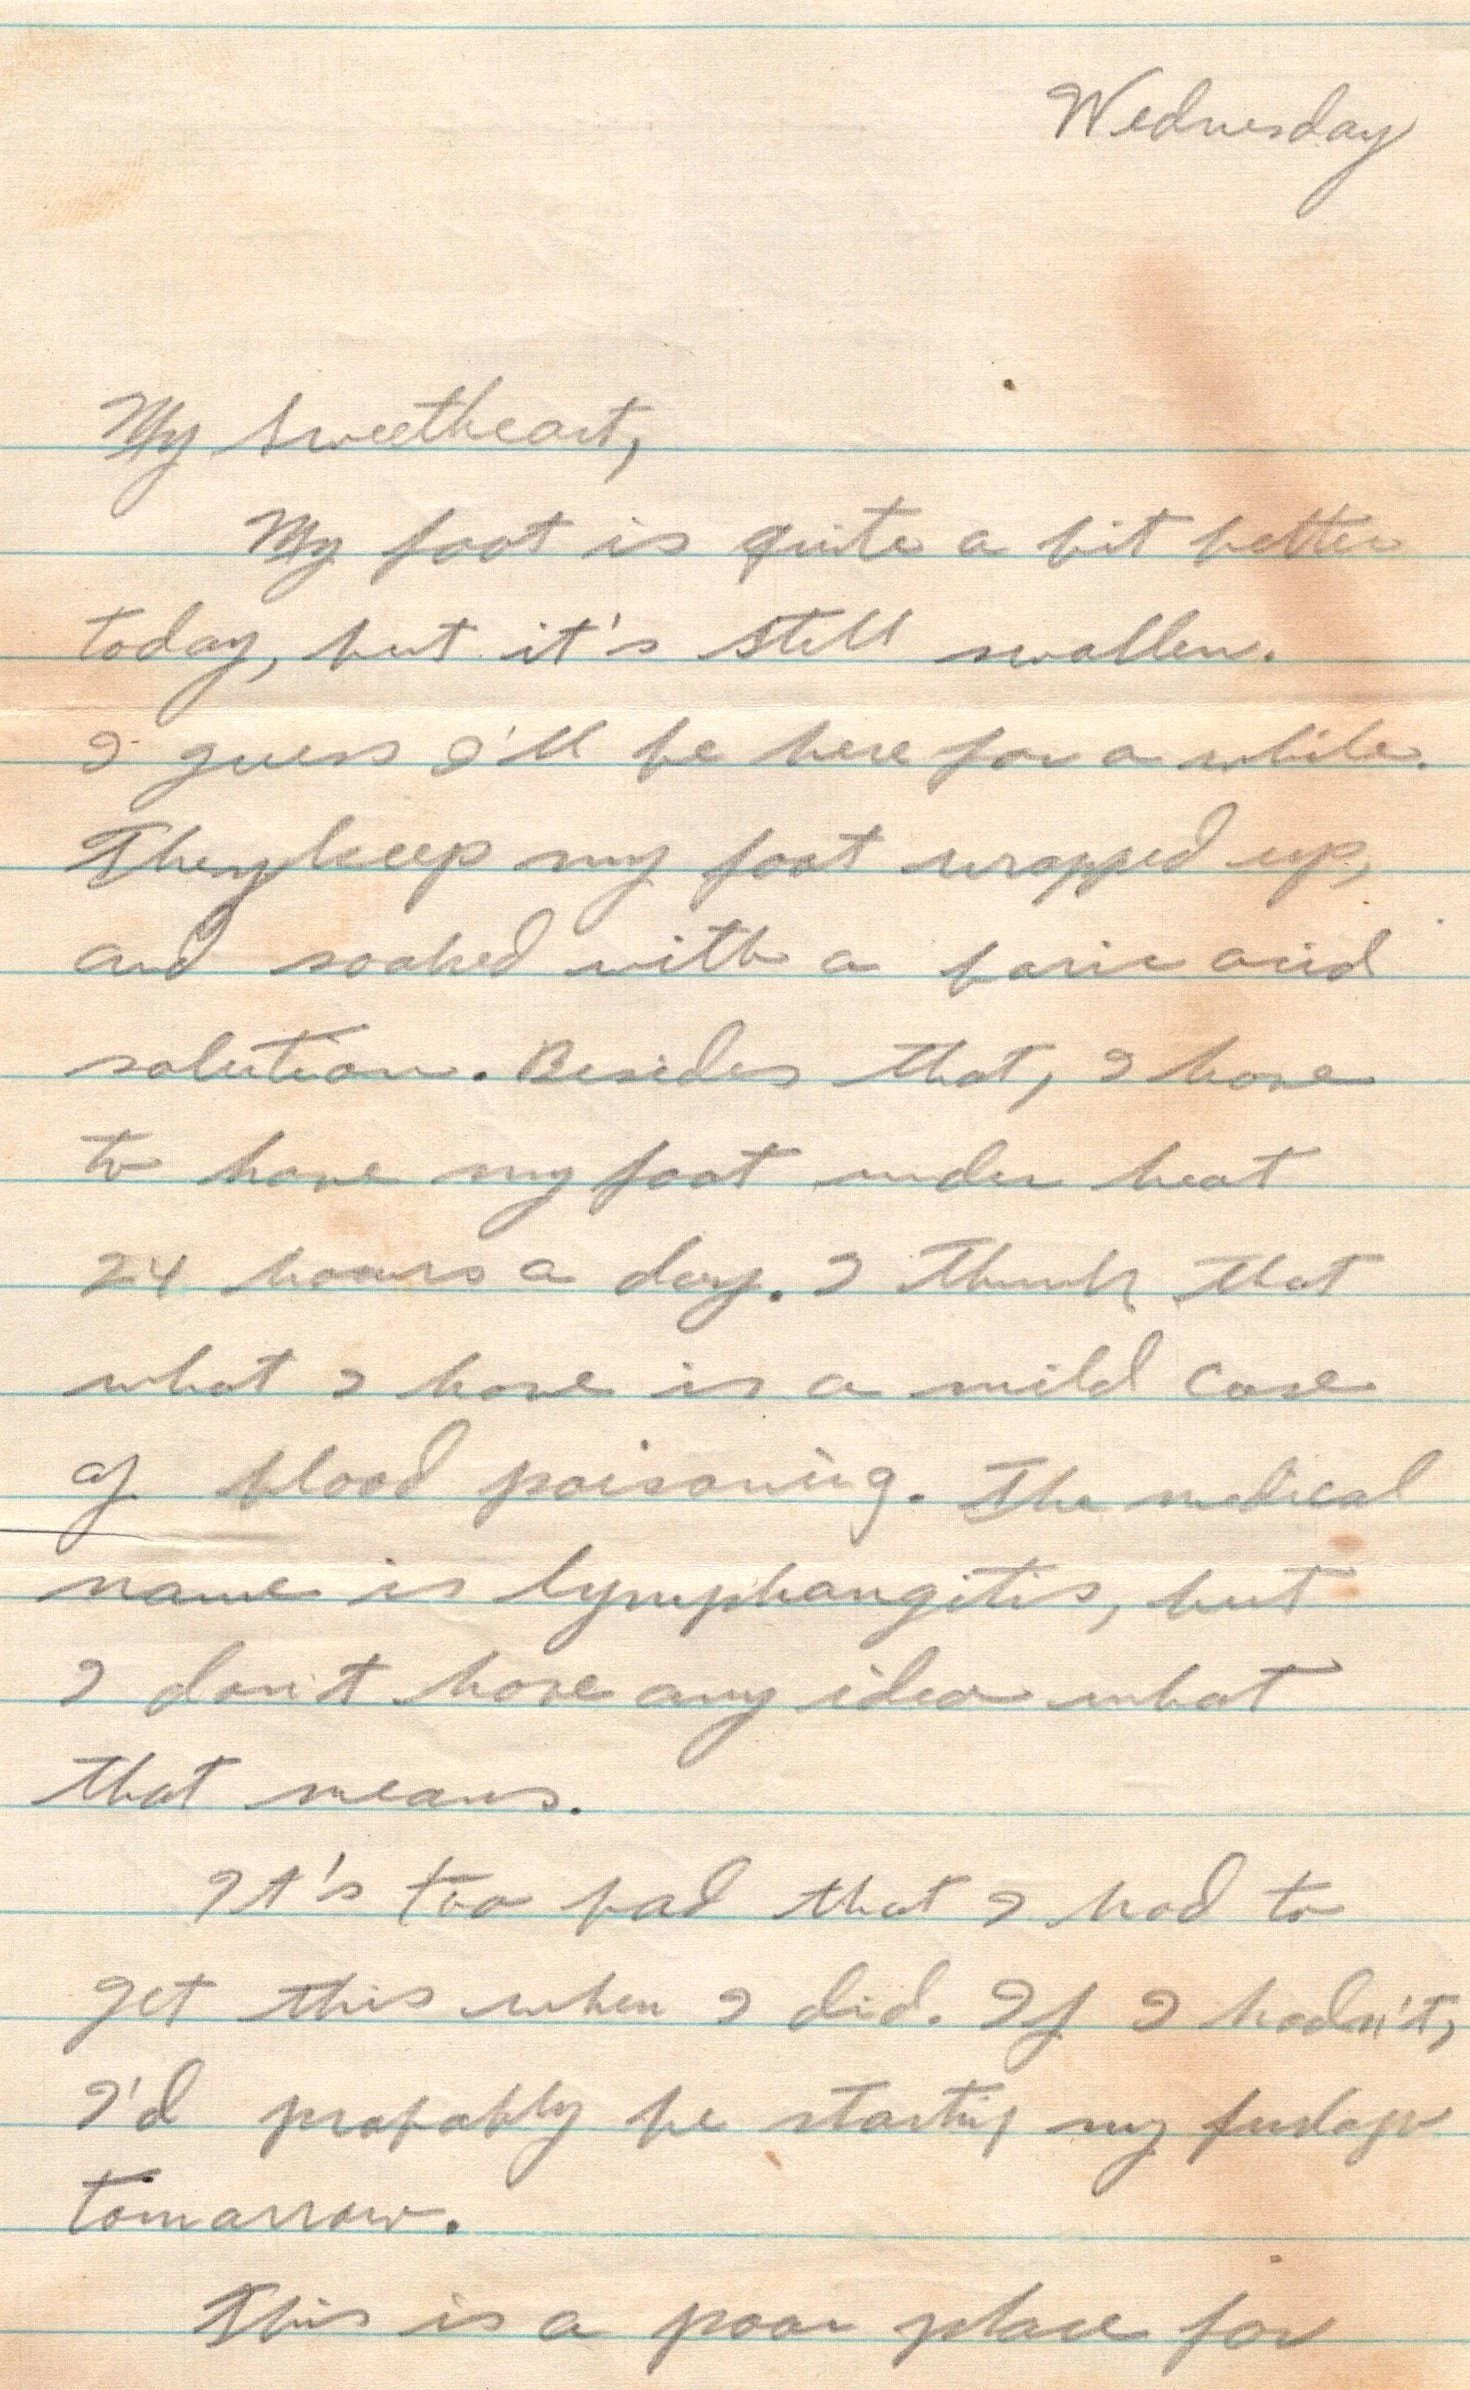 Wednesday
My Sweetheart,
My foot is quite a bit better
today, but it's still swollen.
I guess I'll be here for a while.
They keep my foot wrapped up,
and soaked with a boric acid
solution. Besides that, I have
to have my foot under heat
24 hours a day. I think that
what I have is a mild case
of blood poisoning. The medical
name is lymphangitis, but
I don't have any idea what
that means.
It's too bad that I had to
get this when I did. If I hadn't,
I'd probably be starting my furlough
tomorrow.
This is a poor place for